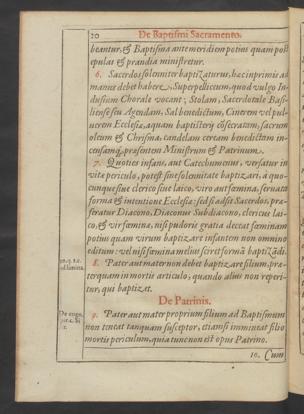 20
De Baptismi Sacramento.
beantur, & Baptisma ante meridiem potius quam post
epulas & prandia ministretur.
6. Sacerdos solenniter baptizaturus, hæc in primis ad
manus debet habere, Superpelliceum, quod vulgo In-
dusium Chorale vocant, Stolam, Sacerdotale
seu Agendam, Sal benedictum, Cinerem vel pul-
uerem Ecclesiæ, aquam baptisterij cōsecratam, sacrum
oleum & Chrisma, candelam cereum benedictam in-
censamq; præsentem Ministrum & Patrinum.
7. Quoties infans, aut Catechumenus, versatur in
vitæ periculo, potest sine solennitate baptizari, à quo-
cunque siue clerico siue laico, viro aut fœmina, seruata
forma & intentione Ecclesiæ: sed si adsit Sacerdos, præ-
feratur Diacono, Diaconus Subdiacono, clericus lai-
co, & vir fœminæ, nisi pudoris gratia deceat fœminam
potius quam virum baptizare infantem non omnino
editum: vel nisi fœmina melius sciret formā baptizādi.
8. Pater aut mater non debet baptizare filium, præ-
terquam in mortis articulo, quando alius non reperi-
tur, qui baptizet.
De Patrinis.
9. Pater aut mater proprium filium ad Baptismum
non teneat tanquam susceptor, etiamsi immineat filio
mortis periculum, quia tunc non est opus Patrino.
10. Cum